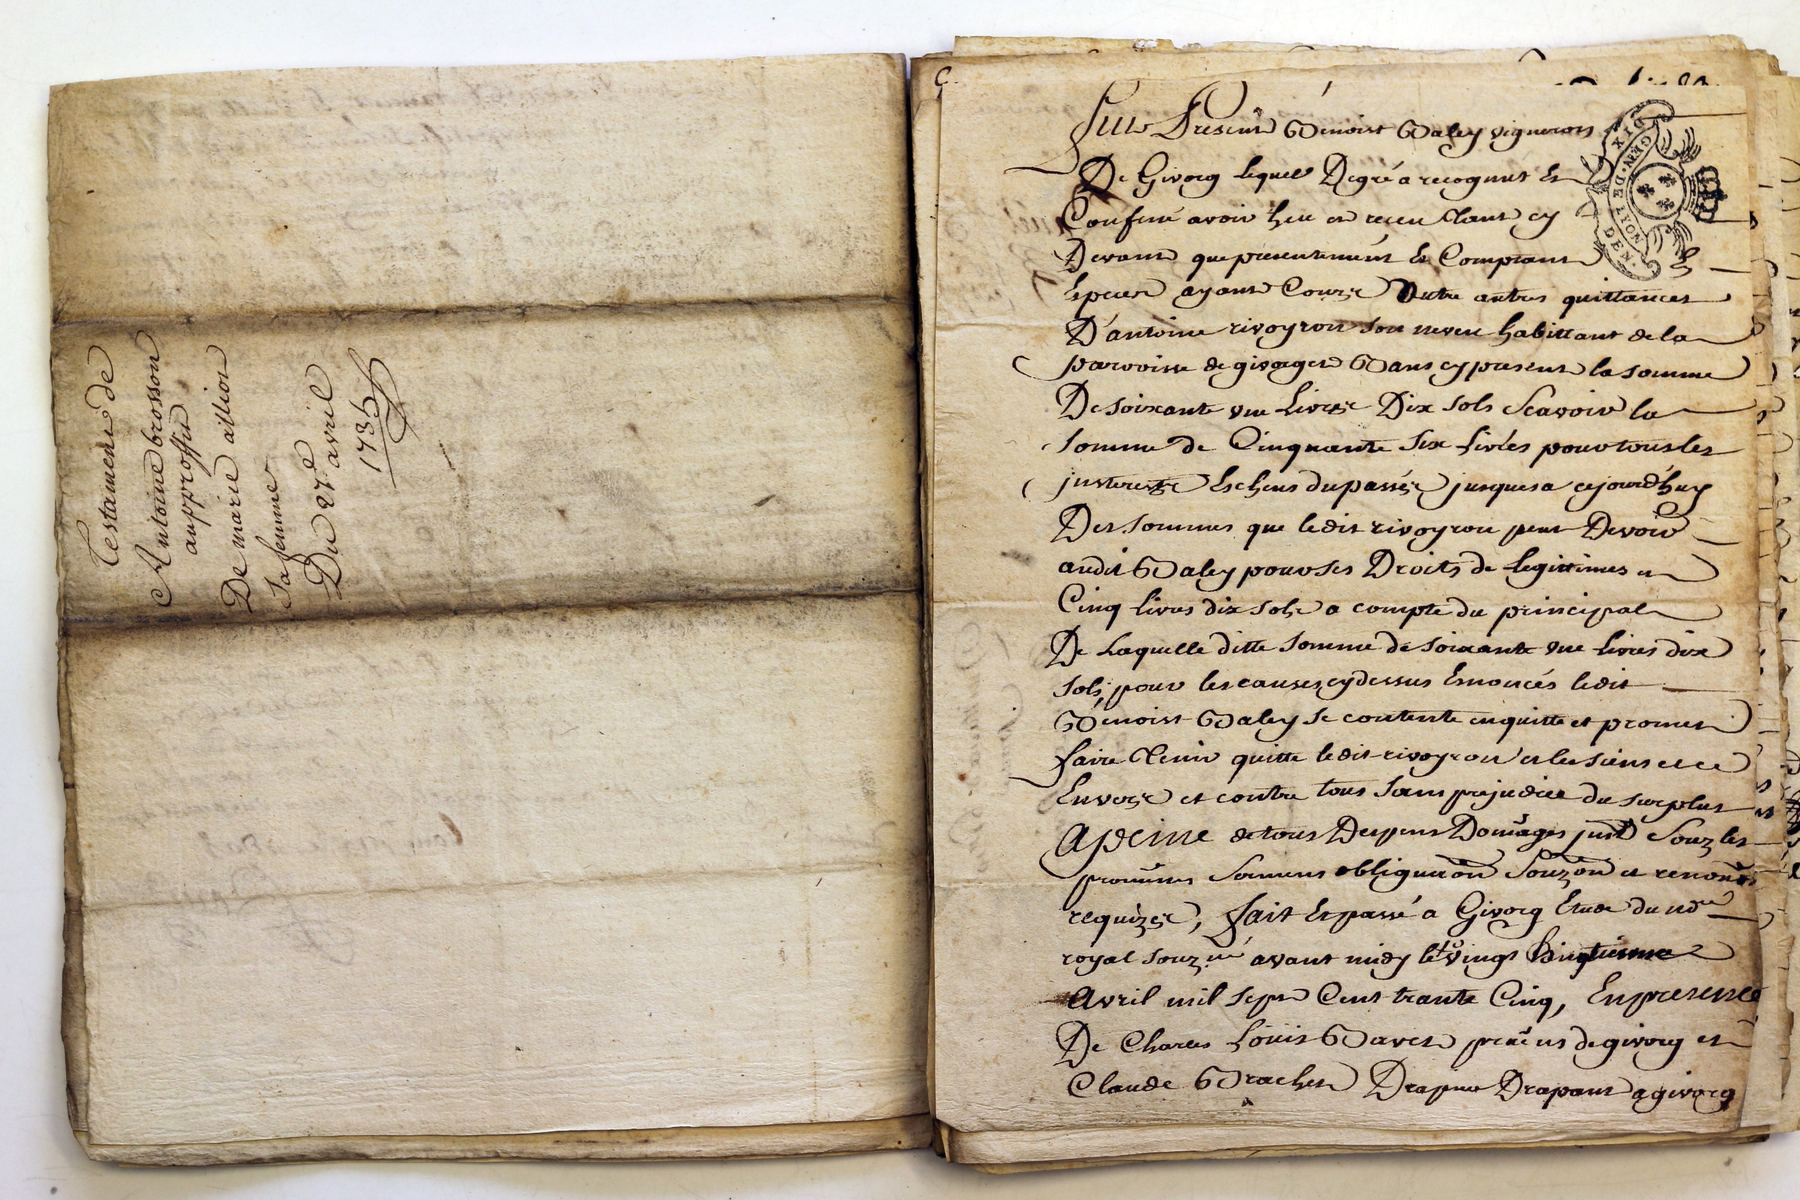 Testament de
Antoine brosson
au proffit
De marie allion
Sa femme
Du 27e avril
1735
GEN. DE LYON
DIX DEN.
Fut Present Benoist Baley vigneron
De Givorg lequel De gré a recognut Et
Confessé avoir heu et receu Clant cy
Devant que presentement Et Comptant
Especes ayant Cours Outre autres quittances
D'antoine rivoyron son neveu habittant de la
parroisse de givages Bans cy present la somme
De soixante une Livres Dix sols Scavoir la
somme de Cinquante Six Livres pour tous les
justerests Eschus du passés jusques a cejourdhuy
Des sommes que ledit rivoyron peut Devoir
audit Baley pour ses Droits de legittimes et
Cinq livres dix sols a compte du principal
De Laquelle ditte somme de soixante une livres dix
sols, pour les causes cy dessus Enoncés ledit
Benoist Baley se contente en quitte et promet
faire Tenir quitte ledit rivoyron et les siens et ce
Envers et contre tous sans prejudice du surplus
A peine de tous Despens Domages Souz les
promeses obliguaon et renonons
requizes, fait Et passé a Givorg Etude du nore
royal souzné avant midy le vingt huiqtieme
Avril mil sept Cent trante Cinq, En presence
De Charles Louis Bavet de givorg et
Claude Brachet Drapier Drapant a givorg